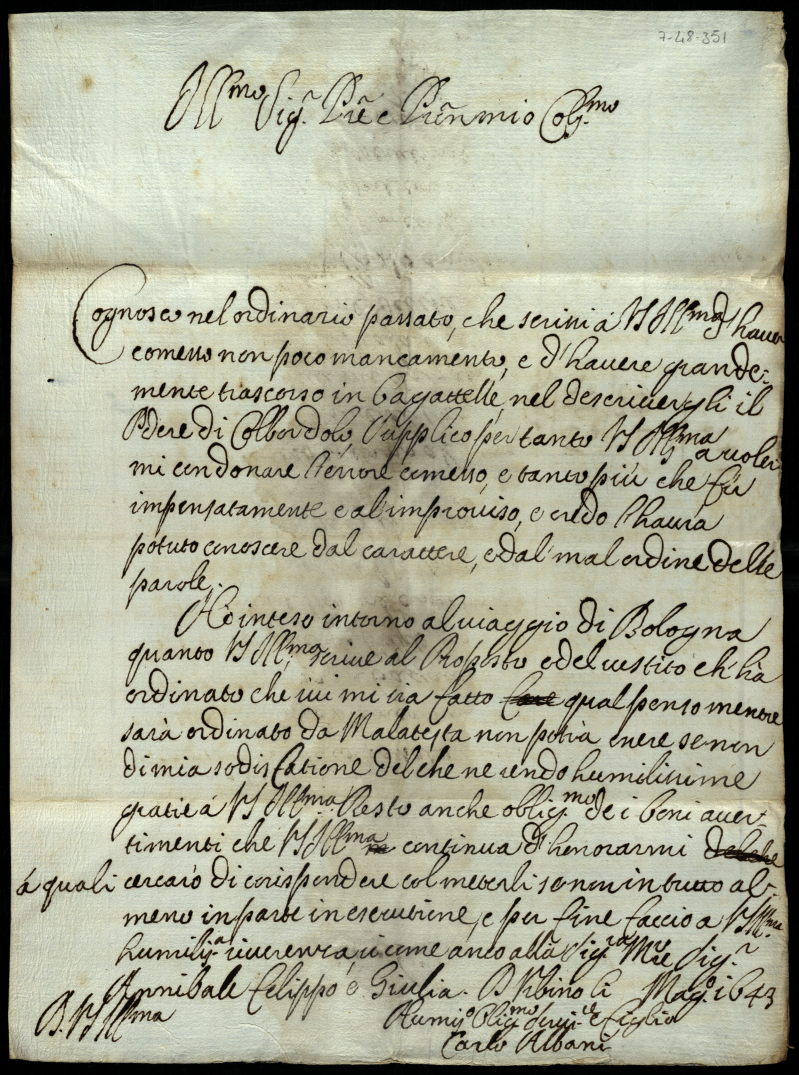 7-48-351
Ill.mo Sig.r P.re e P.ron mio Coll.mo
Cognosco nel ordinario passato, che scrissi á VS Ill.ma d'haver
comesso non poco mancamento, e d'havere grande-
mente trascorso in bagattelle, nel descrivergli il
Pdere di Colbordolo, supplico per tanto VS Ill.ma a voler
mi condonare l'errore comesso, e tanto più che fu
impensatamente e al'improviso, e credo l'haurà
potuto conoscere dal carattere, e dal mal ordine delle
parole.
Hò inteso intorno al viaggio di Bologna
quanto VS Ill.ma scrive al Proposto e del vestito ch'hà
ordinato che iui mi sia fatto qual penso mentre
sarà ordinato da Malatesta non potrà essere se non
di mia sodisfatione del che ne rendo humilissime
gratie á VS Ill.ma. Resto anche oblig.mo de i boni aver-
timenti che VS Ill.ma continua d'honorarmi delche
á quali cercarò di corispondere col meterli se non in tutto al-
meno in parte in esecutione, e per fine faccio a VS Ill.ma
humiliss.a riverenza, si come anco alla Sig.ra M.re Sig.r
Annibale Felippo e Giulia. D Vrbino li Mag.o 1643
D. VS Ill.ma
Humiss.o Oblig.mo Servi.re e Figlio
Carlo Albani